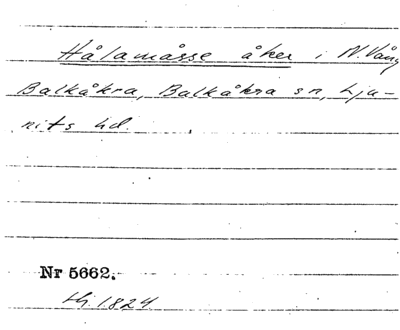 Hålamåsse åker i N. Vång
Balkåkra, Balkåkra sn, Lju-
nits hd.
Nr 5662.
Hj. 1824